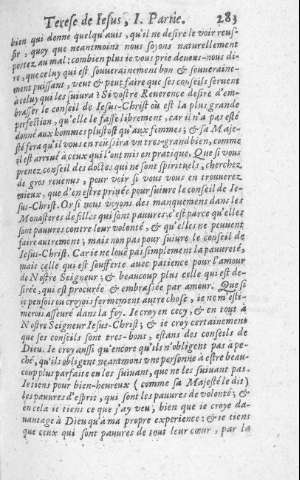 Terese de Iesus, I. Partie. 283
bien qui donne quelqu'auis, qu'il ne desire le voir reus-
sir, quoy que neantmoins nous soyons naturellement
portez au mal: combien plus ie vous prie deuons-nous di-
re, que celuy qui est souuerainement bon & souueraine-
ment puissant, veut & peut faire que ses conseils seruent
à celuy qui les suiura? Si vostre Reuerence desire d'em-
brasser le conseil de Iesus-Christ où est la plus grande
perfection, qu'elle le fasse librement, car il n'a pas esté
donné aux hommes plustost qu'aux femmes; & sa Maje-
sté fera qu'il vous en reüssira vn tres-grand bien, comme
il est arriué à ceux qui l'ont mis en pratique. Que si vous
prenez conseil des doctes qui ne sont spirituels, cherchez
de gros reuenus, pour voir si vous vous en trouuerez
mieux, que d'en estre priuée pour suiure le conseil de Ie-
sus-Christ. Or si nous voyons des manquemens dans les
Monasteres de filles qui sont pauures c'est parce qu'elles
sont pauures contre leur volonté, & qu'elles ne peuuent
faire autrement, mais non pas pour suiure le conseil de
Iesus-Christ. Car ie ne louë pas simplement la pauureté,
mais celle qui est soufferte auec patience pour l'amour
de Nostre Seigneur; & beaucoup plus celle qui est de-
sirée, qui est procurée & embrassée par amour. Que si
ie pensois ou croyois fermement autre chose, ie ne m'esti-
merois asseurée dans la foy. Ie croy en cecy, & en tout à
Nostre Seigneur Iesus-Christ, & ie croy certainement
que ses conseils sont tres-bons, estans des conseils de
Dieu. Ie croy aussi qu'encore qu'ils n'obligent pas à pe-
ché, qu'ils obligent neantmoins vne personne à estre beau-
coup plus parfaite en les suiuant, que ne les suiuant pas.
Ie tiens pour bien-heureux (comme sa Majesté le dit)
les pauures d'esprit, qui sont les pauures de volonté; &
en cela ie tiens ce que j'ay veu, bien que ie croye da-
uantage à Dieu qu'à ma propre experience; & ie tiens
que ceux qui sont pauures de tout leur cœur, par la